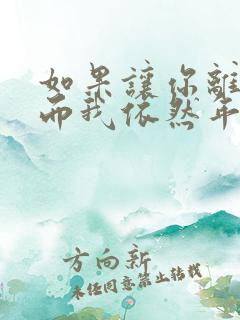 如果讓你離
而我依然年
方向新
未经同意禁止转载